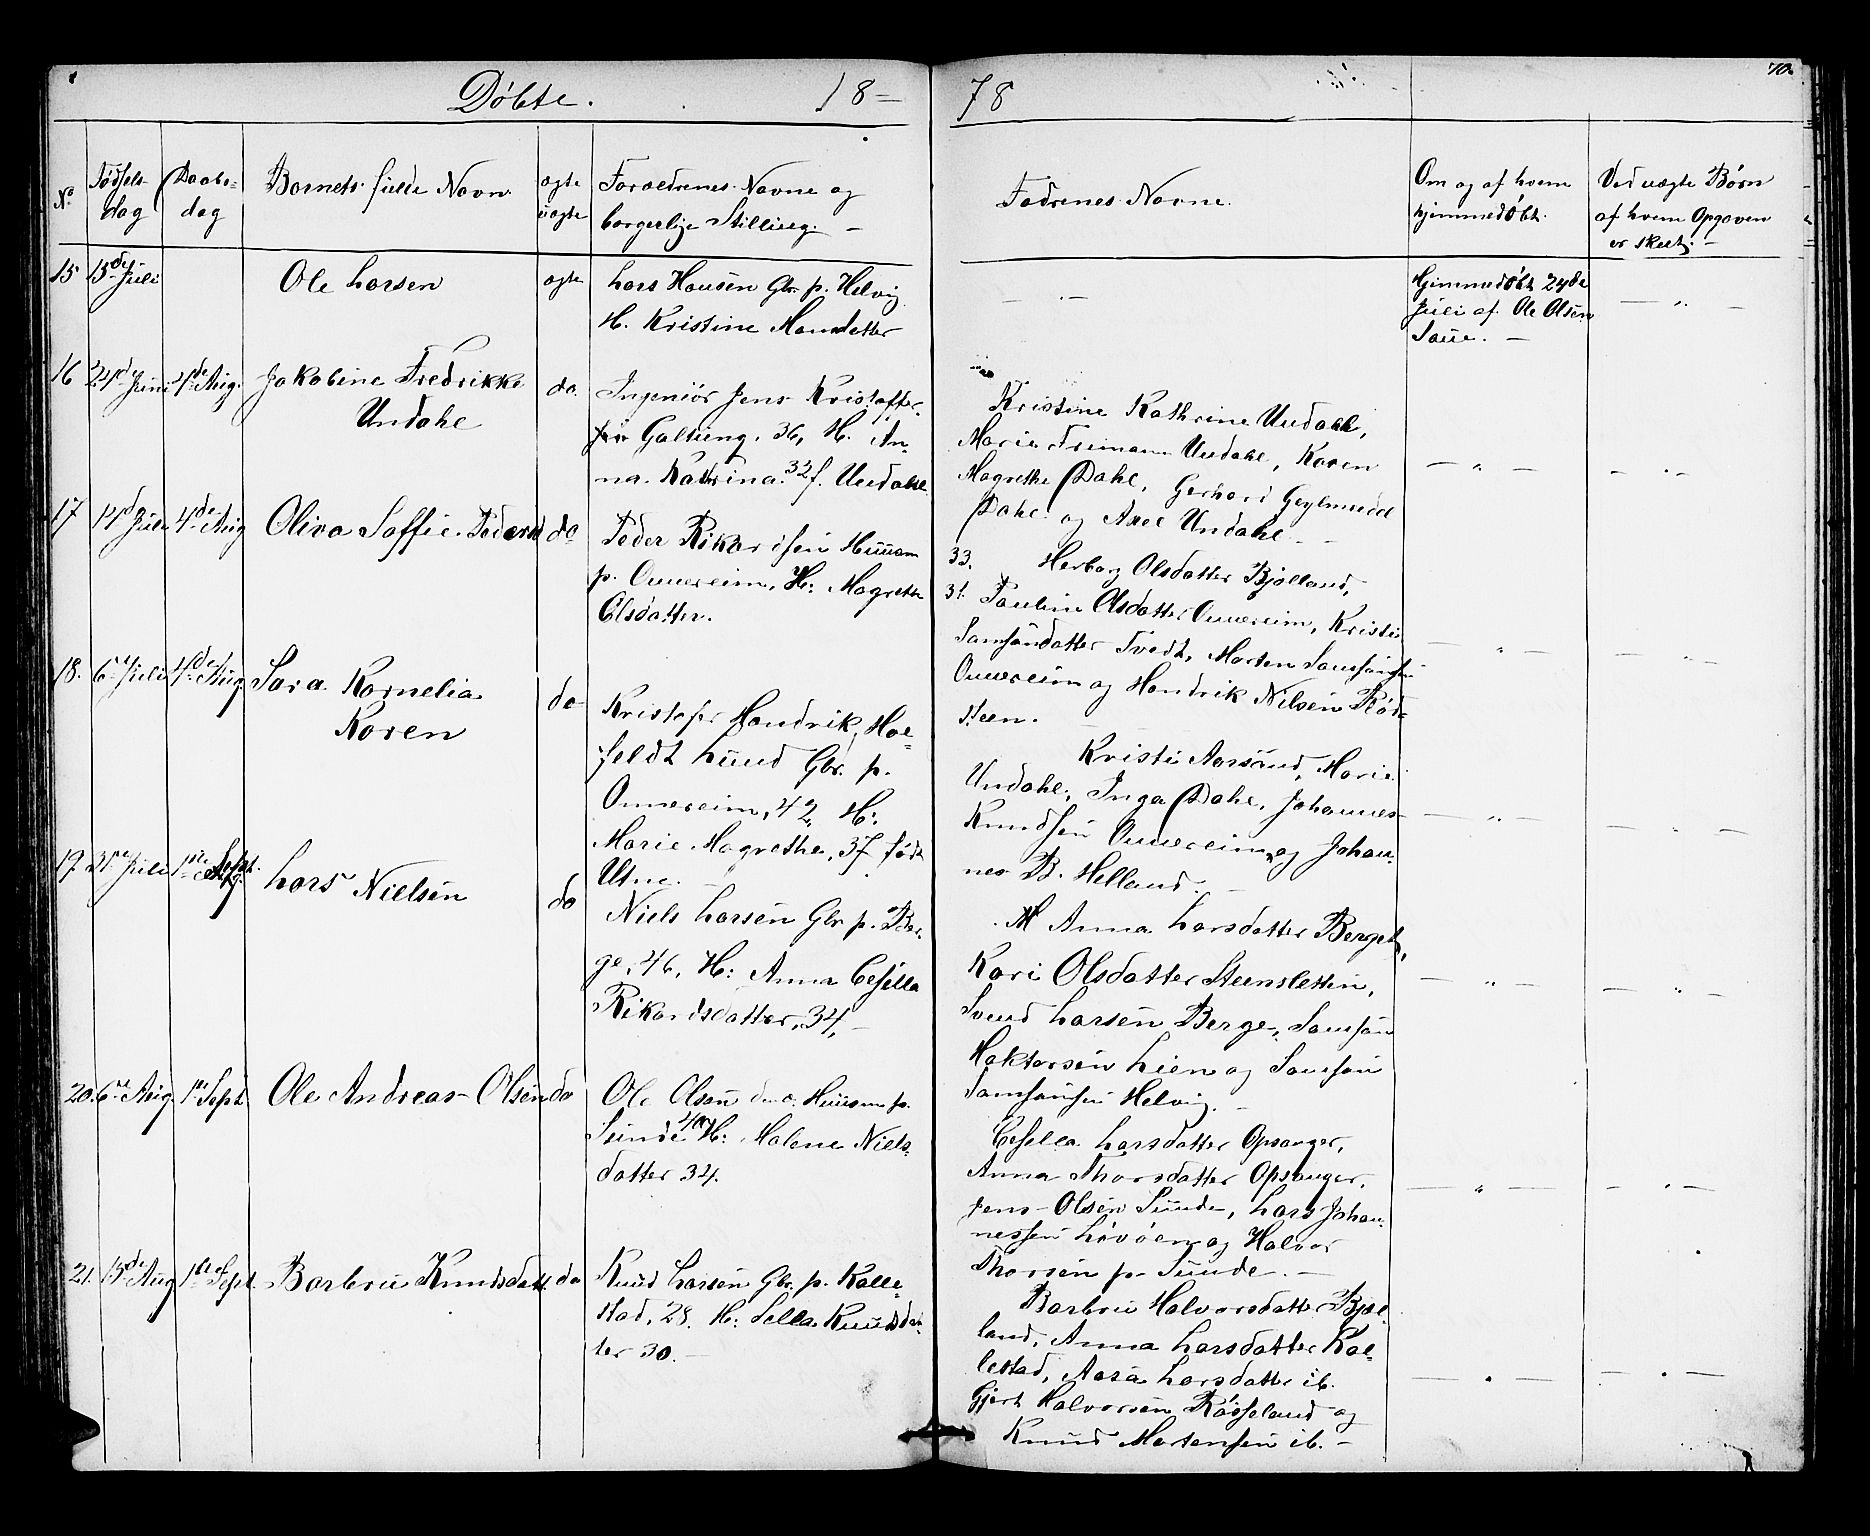 Döbte. 18=
78
70.
No
Fødsels-
dag
Daabs=
dag
Barnets fulde Navn.
ægte
uægte
Forældrenes Navne og
borgerlige Stilling. –
Fadrenes Navne.
Om og af hvem
hjemmedöbt.
Ved uægte Børn
af hvem Opgaven
er skeet. –
15 15de Juli Ole Larsen ægte
Lars Hansen Gbr. p. Helvig
H. Kristine Hansdatter
– " –
Hjemmedöbt 24de
Juli af Ole Olsen
Saue. –
– " –
16 24de Juni 4de Aug. Jakobine Fredrikke
Undahl
do.
Ingeniör Jens Kristoffer
Galtung, 36, H. An-
na Katrina 32 f. Undahl
Kristine Kathrine Undahl,
Marie Freimann Undahl, Karen
Magrethe Dahl, Gerhard Geylmuedel
Dahl og Axel Undahl –
– " –
– " –
17 14de Juli 4de Aug Oliva Soffie Pedersd do
Peder Rikardsen Huusm
p. Omvereim, H: Magrethe
Olsdatter.
33. Herborg Olsdatter Bjölland,
31. Pauline Olsdatter Omvereim, Kristi
Samsondatter Tvedt, Morten Samsonsen
Omvereim og Hendrik Nilsen Röd=
steen.
– " –
– " –
18. 6te Juli 4de Aug. Sara Kornelia
Karen
do
Kristofer Hendrik Hol=
feldt Lund Gbr. p.
Omvereim, 42, H:
Marie Magrethe, 37 født
Utne. –
Kristi Aarsand, Marie
Undahl, Inga Dahl, Johannes
Knudsen Omvereim og Johan-
nes B. Helland. –
– " –
– " –
19. 31te Juli 1ste Sept. Lars Nielsen do
Niels Larsen Gbr p. Ber-
ge, 46, H: Anna Cesilla
Rikardsdatter, 34, –
M Anna Larsdatter Berget,
Kari Olsdatter Steensletten,
Svend Larsen Berge, Samson
Haktorsen Lien og Samson
Samsonsen Helvig. –
– " –
– " –
20. 6te Aug. 1ste Sept Ole Andreas Olsen do
Ole Olsen Huusm p.
Sunde 40 H: Malene Niels-
datter 34.
Cesilla Larsdatter Opsanger,
Anna Thorsdatter Opsanger,
Jens Olsen Sunde, Lars Johan-
nessen Lövöen og Halvor
Thorsen p. Sunde. –
– " –
– " –
21. 15de Aug 1ste Sept Barbru Knudsdatt. do
Knud Larsen Gbr. p. Kalle-
stad, 28. H: Sella Knudsdat-
ter 30. –
Barbru Halvorsdatter Bjøl-
land, Anna Larsdatter Kal-
lestad, Aasa Larsdatter ib.
Gjert Halvorsen Røsseland og
Knud Mortensen ib. –
– " –
– " –